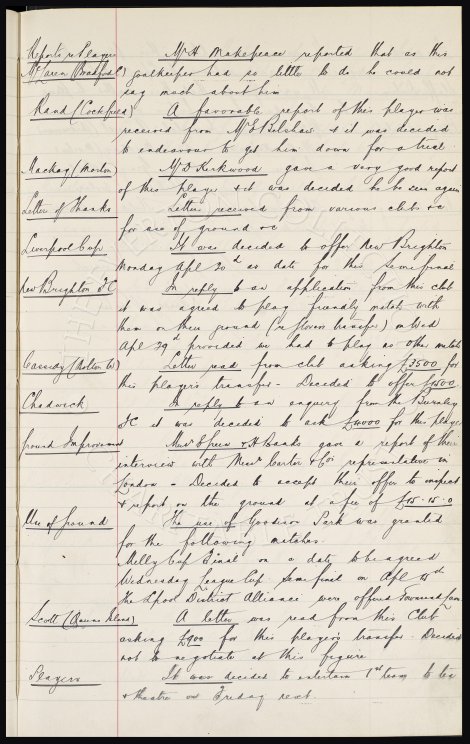 Reports re Players Mr H Makepeace reported that as this
McLaren (Bradford C) goalkeeper had so little to do he could not
say much about him
Rand (Cockfield) A favorable report of this player was
received from Mr E Bilshaw & it was decided
to endeavour to get him down for a trial.
Mackay (Morton) Mr D Kirkwood gave a very good report
of this player & it was decided he be seen again
Letter of Thanks Letters received from various clubs &c
for use of ground &c
Liverpool Cup It was decided to offer New Brighton
Monday Apl 20th as date for this Semi final
New Brighton FC In reply to an application from this club
it was agreed to play friendly match with
them on their ground (re transfer) on Wed
Apl 29th provided we had to play no other match
Cassidy (Bolton W) Letter read from club asking £3500 for
this player's transfer - Decided to offer £1500
Chadwick In reply to an enquiry from the Burnley
FC it was decided to ask £4000 for this player
Ground Improvement Messrs Green & H Banks gave a report of their
interview with Messrs Carter & Co's representative in
London - Decided to accept their offer to inspect
& report on the ground at a fee of £15.15.0
Use of Ground The use of Goodison Park was granted
for the following matches.
Melly Cup Final on a date to be agreed
Wednesday League Cup Semi final on Apl 15th
The Lpool District Alliance were offered
Scott (Queens Island) A letter was read from this Club
asking £900 for this player's transfer. Decided
not to negotiate at this figure
Players It was decided to entertain 1st team to tea
& theatre on Friday next.